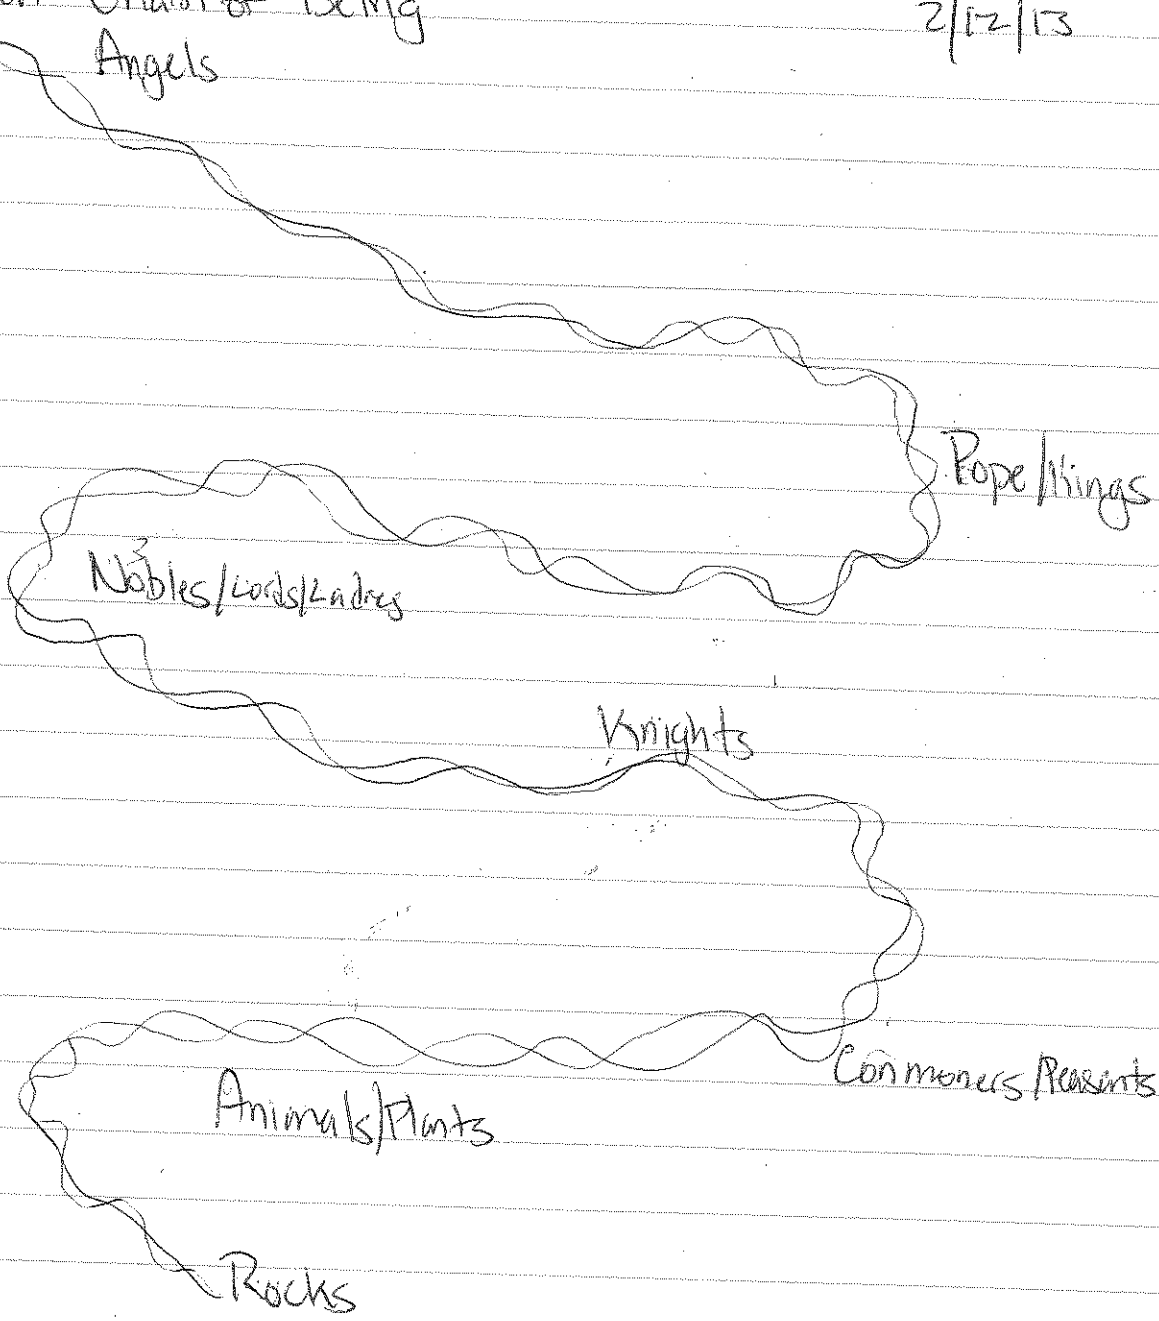 Chain of Being
2/12/13
Angels
Pope/Kings
Nobles/Lords/Ladies
Knights
Commoners/Peasants
Animals/Plants
Rocks